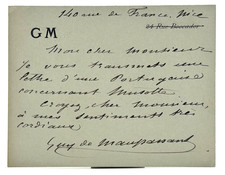 140 rue de France, Nice
24 Rue Boccador
GM
Mon cher monsieur
Je vous transmets une
lettre d'une Portugaise
concernant Musotte
Croyez, cher monsieur,
à mes sentiments très
cordiaux
Guy de Maupassant